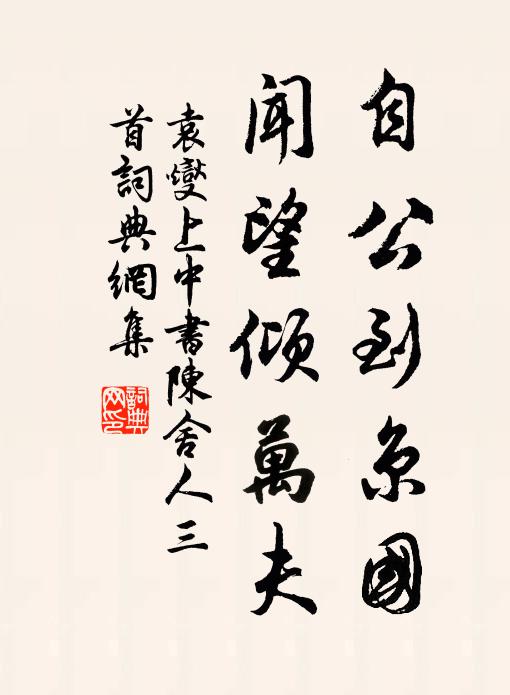 自公到京國
聞望傾萬夫
袁燮上中書陳舍人三
首詞典網集
詞典
网印